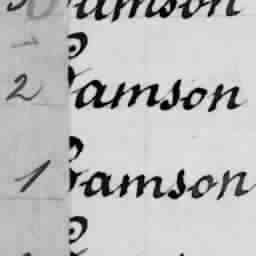 Samson
2 Samson
1 Samson